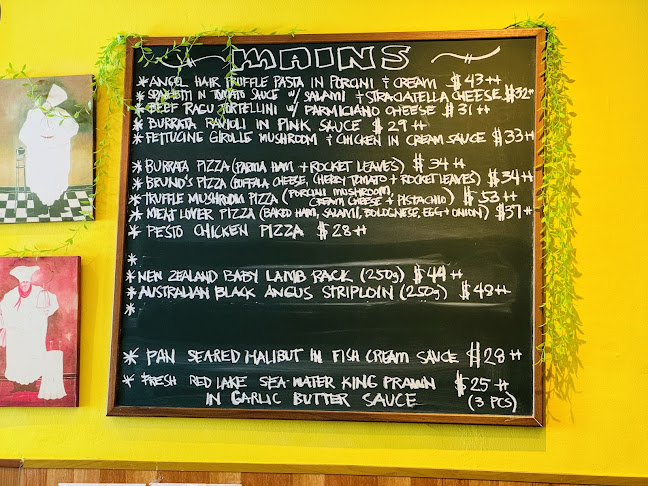 MAINS
* ANGEL HAIR TRUFFLE PASTA IN PORCINI + CREAM $43++
* SPAGHETTI IN TOMATO SAUCE w/ SALAMI + STRACIATELLA CHEESE $32++
* BEEF RAGU TORTELLINI w/ PARMIGIANO CHEESE $31++
* BURRATA RAVIOLI IN PINK SAUCE $29++
* FETTUCINE GIROLLE MUSHROOM + CHICKEN IN CREAM SAUCE $33++
* BURRATA PIZZA (PARMA HAM + ROCKET LEAVES) $34++
* BRUNO'S PIZZA (BUFFALA CHEESE, CHERRY TOMATO + ROCKET LEAVES) $34++
* TRUFFLE MUSHROOM PIZZA (PORCINI MUSHROOM, CREAM CHEESE + PISTACHIO) $53++
* MEAT LOVER PIZZA (BAKED HAM, SALAMI, BOLOGNESE, EGG + ONION) $37++
* PESTO CHICKEN PIZZA $28++
*
* NEW ZEALAND BABY LAMB RACK (250g) $44++
* AUSTRALIAN BLACK ANGUS STRIPLOIN (250g) $48++
*
* PAN SEARED HALIBUT IN FISH CREAM SAUCE $28++
* FRESH RED LAKE SEA-WATER KING PRAWN $25++
IN GARLIC BUTTER SAUCE (3 PCS)